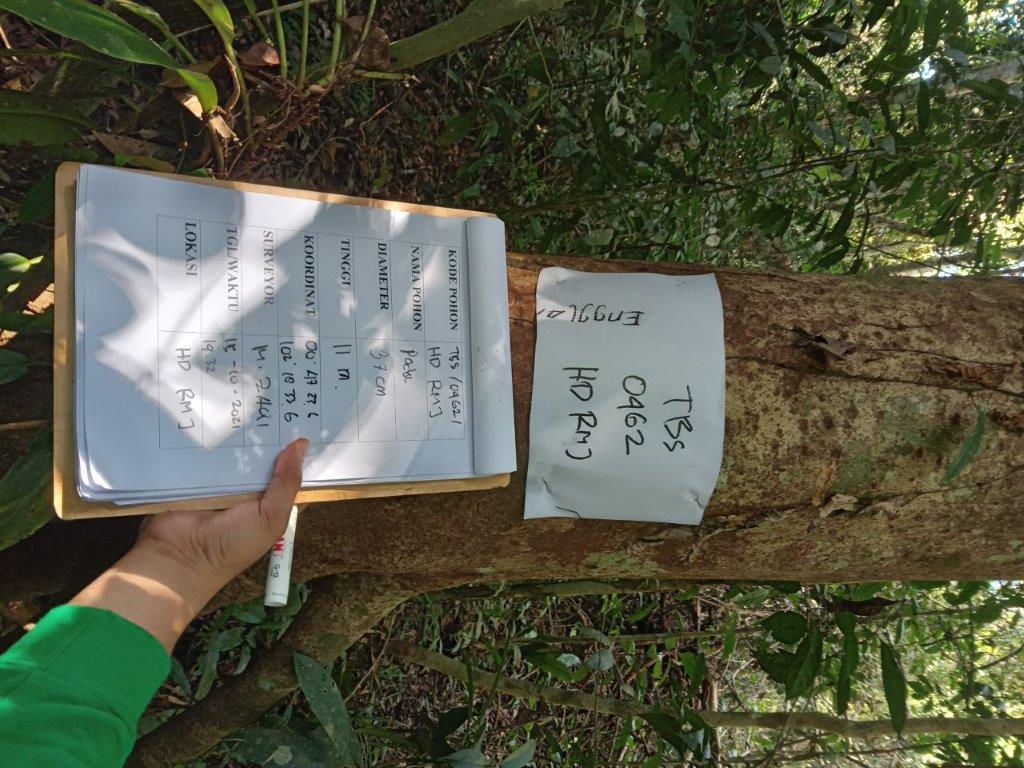 TBS
0462
HD RMJ
KODE POHON TBS /0462/
HD RMJ
NAMA POHON
DIAMETER 37 cm
TINGGI 11 m.
KOORDINAT 00° 47 22 6
102° 18 33 6
SURVEYOR M. ZAQI
TGL/WAKTU 15 -10 - 2021
19.32
LOKASI HD RMJ
G-12